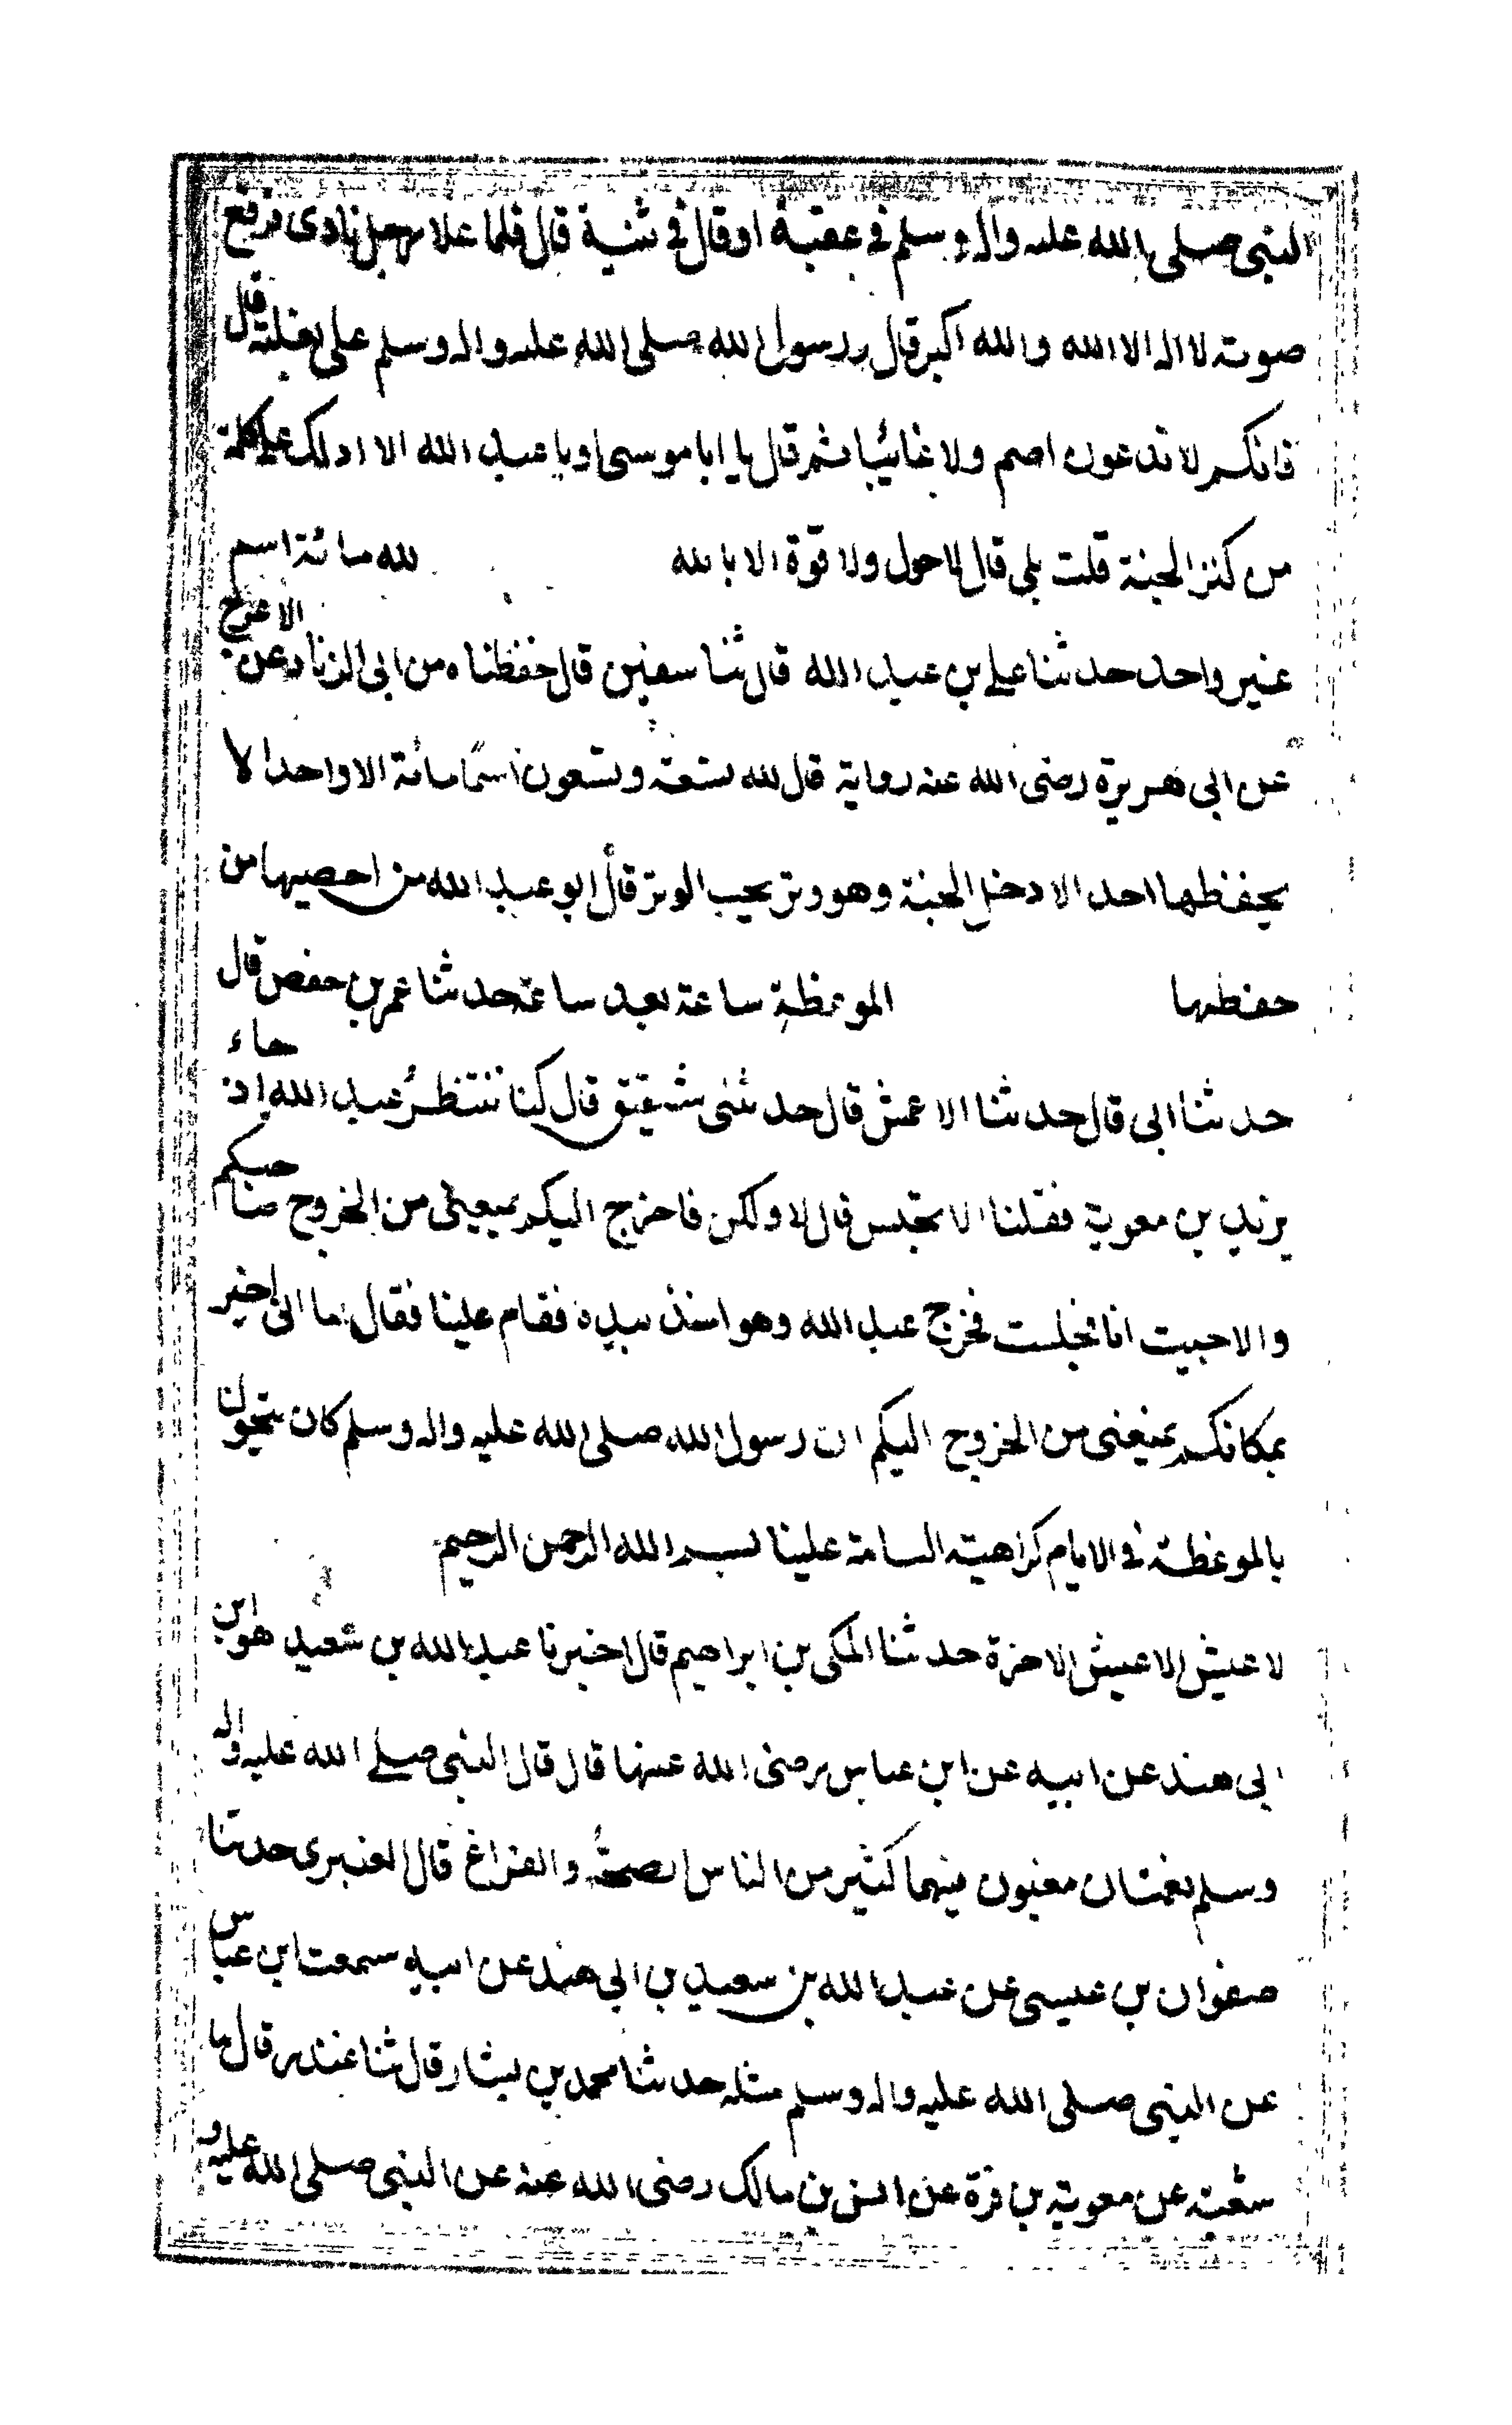 النبي صلى الله عليه واله وسلم في عقبة او قال في ثنية قال فلما علا رجل نادى فرفع
صوته لا اله الا الله والله اكبر قال ورسول الله صلى الله عليه واله وسلم على بغلته قال
فانكم لا تدعون اصم ولا غائبا ثم قال يا ابا موسى او يا عبد الله الا ادلك على كلمة
من كنز الجنة قلت بلى قال لا حول ولا قوة الا بالله لله مائة اسم
غير واحد حدثنا علي بن عبد الله قال ثنا سفين قال حفظناه من ابي الزناد عن الاعرج
عن ابي هريرة رضى الله عنه رواية قال لله تسعة وتسعون اسما مائة الا واحدا لا
يحفظها احد الا دخل الجنة وهو وتر يحب الوتر قال ابو عبد الله من احصيها من
حفظها الموعظة ساعة بعد ساعة حدثنا عمر بن حفص قال
حدثنا ابي قال حدثنا الاعمش قال حدثنى شقيق قال كنا ننتظر عبد الله اذ جاء
يزيد بن معوية فقلنا الا تجلس قال لا ولكن فاخرج اليكم من الخروج صاحبكم
والا جيت انا فجلست فخرج عبد الله وهو اخذ بيده فقام علينا فقال اما انى اخبر
بمكانكم يمنعنى من الخروج اليكم ان رسول الله صلى الله عليه واله وسلم كان يتخولن
بالموعظة في الايام كراهية السامة علينا بسم الله الرحمن الرحيم
لا عيش الا عيش الاخرة حدثنا المكى بن ابراهيم قال اخبرنا عبد الله بن سعيد هو ابن
ابي هند عن ابيه عن ابن عباس رضى الله عنها قال قال النبي صلى الله عليه واله
وسلم نعمتان مغبون فيهما كثير من الناس الصحة والفراغ قال العنبري حدثنا
صفوان بن عيسى عن عبد الله بن سعيد بن ابي هند عن ابيه سمعت ابن عباس
عن النبي صلى الله عليه واله وسلم مثله حدثنا محمد بن بشار قال ثنا غندر قال ثنا
شعبة عن معوية بن قرة عن انس بن مالك رضى الله عنه عن النبي صلى الله عليه و